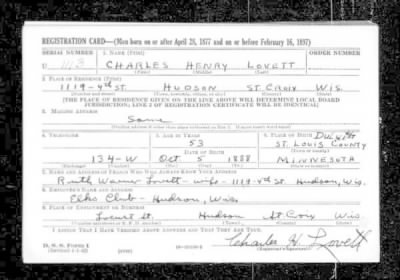 REGISTRATION CARD—(Men born on or after April 28, 1877 and on or before February 16, 1897)
SERIAL NUMBER 1. NAME (Print) ORDER NUMBER
U 1143 CHARLES HENRY LOVETT
(First) (Middle) (Last)
2. PLACE OF RESIDENCE (Print)
1119-4th ST. HUDSON ST. CROIX WIS.
(Number and street) (Town, township, village, or city) (County) (State)
[THE PLACE OF RESIDENCE GIVEN ON THE LINE ABOVE WILL DETERMINE LOCAL BOARD
JURISDICTION; LINE 2 OF REGISTRATION CERTIFICATE WILL BE IDENTICAL]
3. MAILING ADDRESS
Same
[Mailing address if other than place indicated on line 2. If same insert word same]
4. TELEPHONE 5. AGE IN YEARS 6. PLACE OF BIRTH
53 ST. LOUIS COUNTY
DATE OF BIRTH (Town or county)
134-W Oct 5 1888 MINNESOTA
(Exchange) (Number) (Mo.) (Day) (Yr.) (State or country)
7. NAME AND ADDRESS OF PERSON WHO WILL ALWAYS KNOW YOUR ADDRESS
Ruth Warner Lovett - wife - 1119-4th St. Hudson, Wis.
8. EMPLOYER'S NAME AND ADDRESS
Elks Club - Hudson, Wis.
9. PLACE OF EMPLOYMENT OR BUSINESS
Locust St. Hudson St Croix Wis.
(Number and street or R. F. D. number) (Town) (County) (State)
I AFFIRM THAT I HAVE VERIFIED ABOVE ANSWERS AND THAT THEY ARE TRUE.
D. S. S. Form 1
Charles H. Lovett
(Registrant's signature)